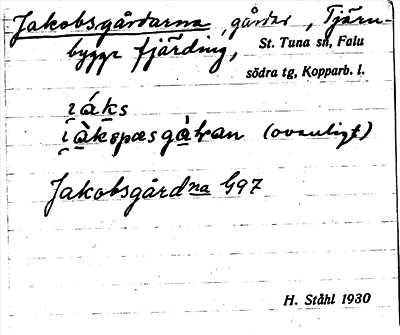 Jakobsgårdarna, gårdar, Tjärn-
bygge fjärding, St. Tuna sn, Falu
södra tg, Kopparb. l.
i̯áks
(ovanligt)
Jakobsgårdna G97
H. Ståhl 1930